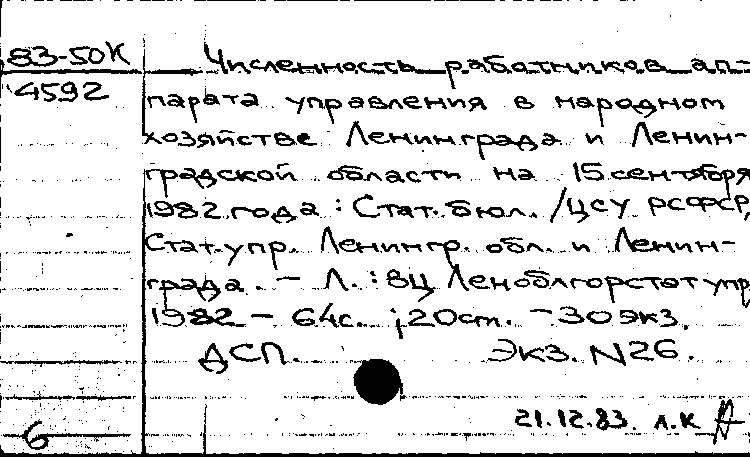 83-50К Численность работников ап-
4592 парата управления в народном
хозяйстве Ленинграда и Ленин-
градской области на 15 сентября
1982 года : Стат. бюл. /ЦСУ РСФСР,
Стат. упр. Ленингр. обл. и Ленин-
града. – Л. : ВЦ Леноблгорстатупр
1982 – 64с. ; 20 см. – 30 экз.
ДСП. Экз. N26.
21.12.83. л.к
6